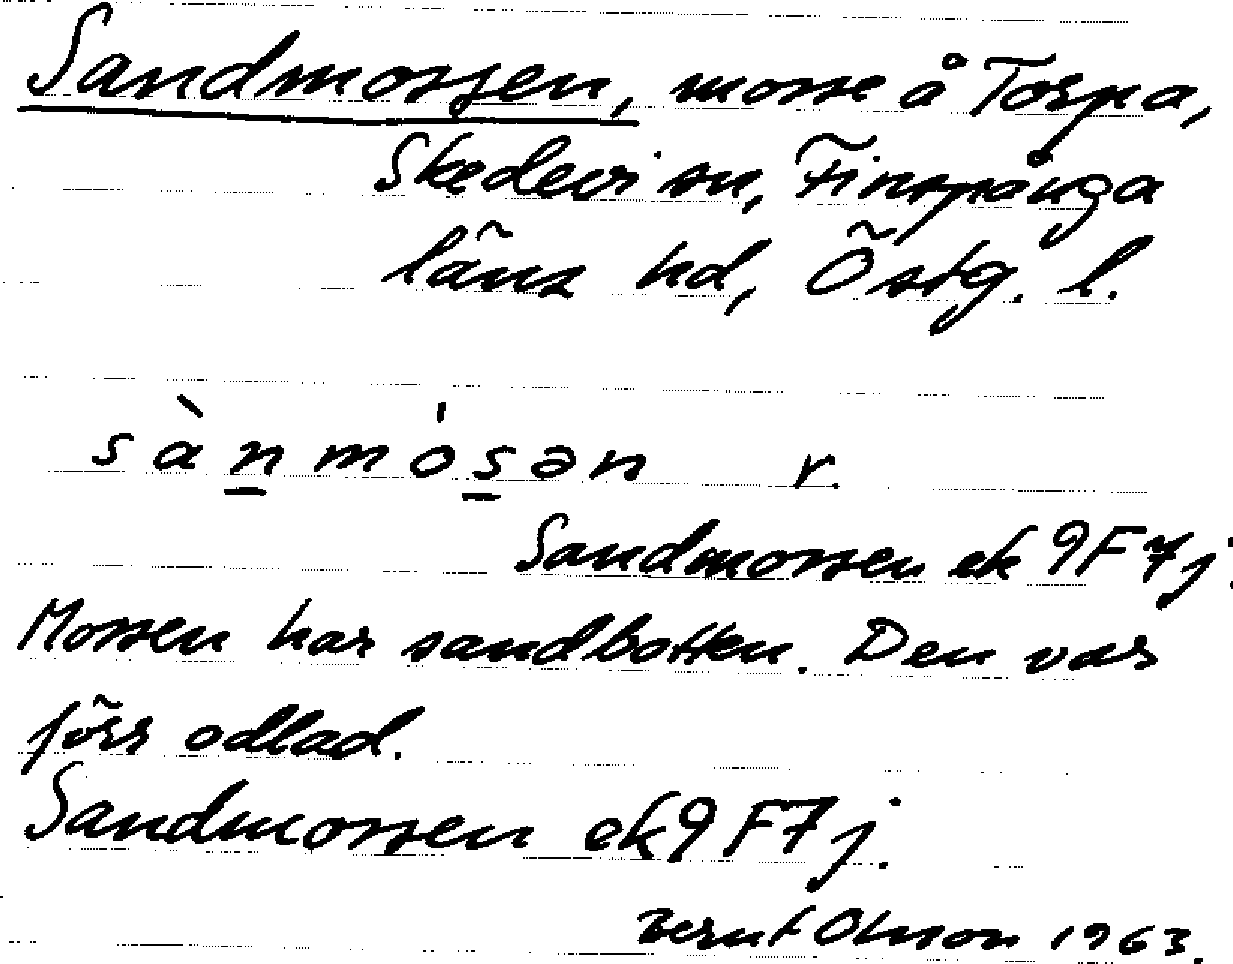 Sandmossen, mosse å Torpa,
Skedevi sn, Finspånga
läns hd, Östg. l.
sànmósən r.
Sandmossen ek 9F7j.
Mossen har sandbotten. Den var
förr odlad.
Sandmossen ek 9F7j.
Bernt Olsson 1963.